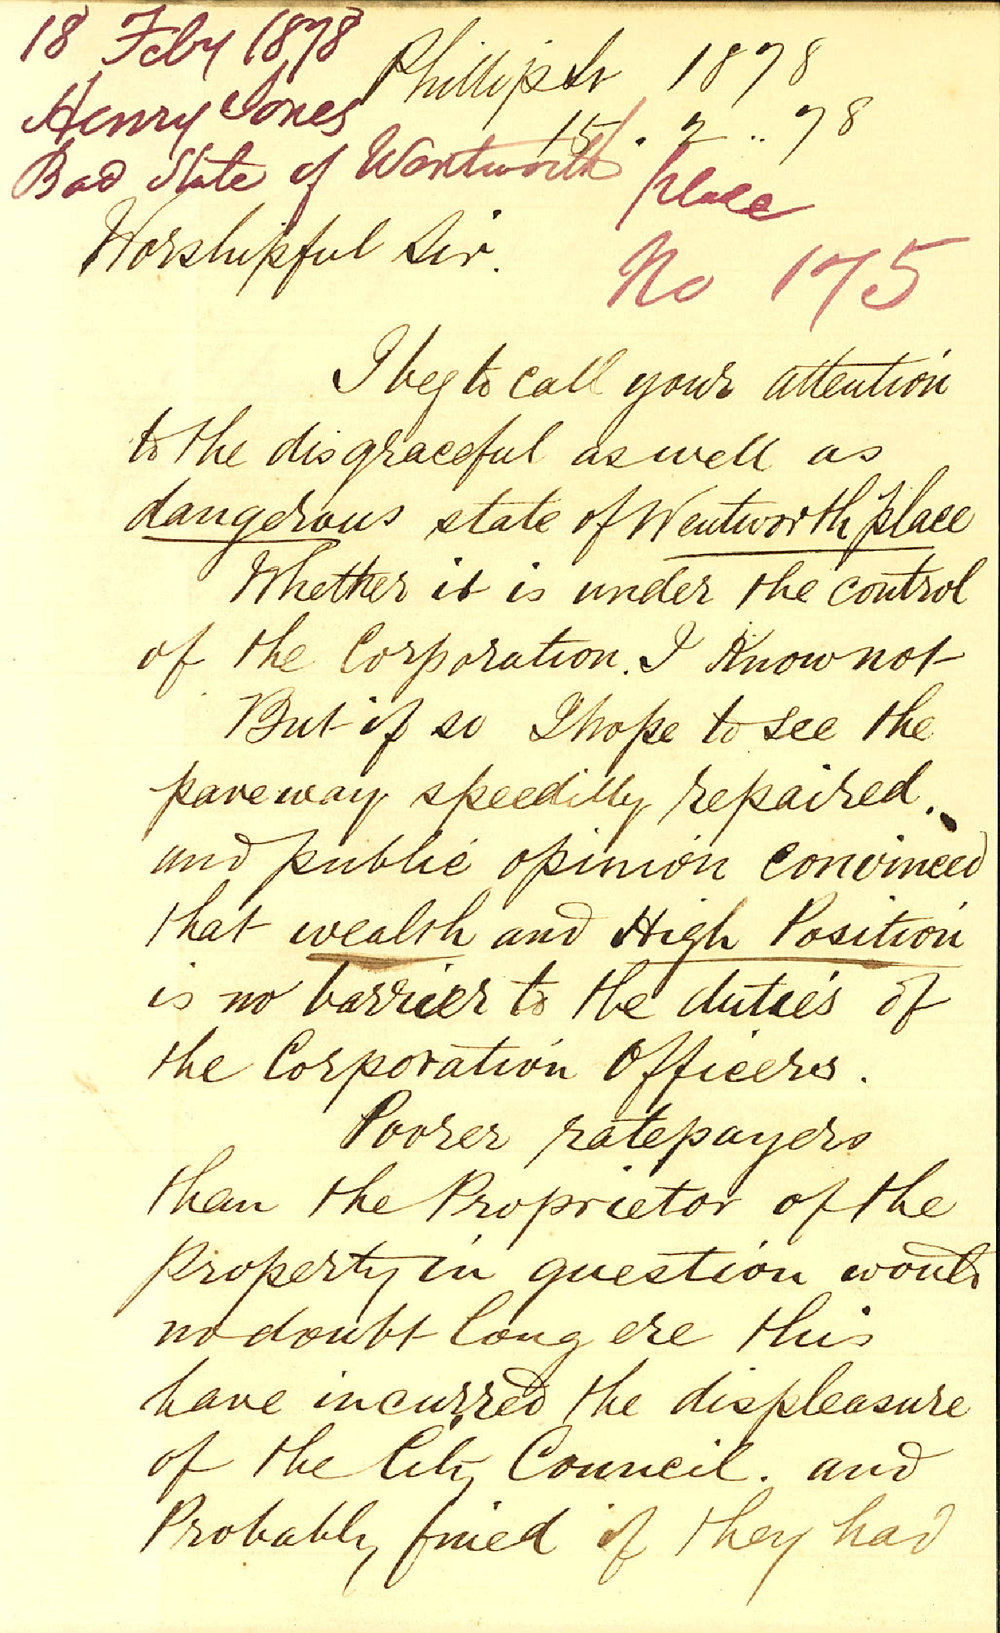 18 Feby 1878
Henry Jones
Bad State of Wentworth place
No 175
Phillip St 1878
15 . 2 .. 78
Worshipful Sir.
I beg to call your attention
to the disgraceful as well as
dangerous state of Wentworth place
Whether it is under the control
of the Corporation. I Know not
But if so I hope to see the
paveway speedilly repaired.
and public opinion convinced
that wealth and High Position
is no barrier to the duties of
the Corporation Officers.
Poorer ratepayers
than the Proprietor of the
Property in question would
no doubt long ere this
have incurred the displeasure
of the City Council. and
Probably fined if they had